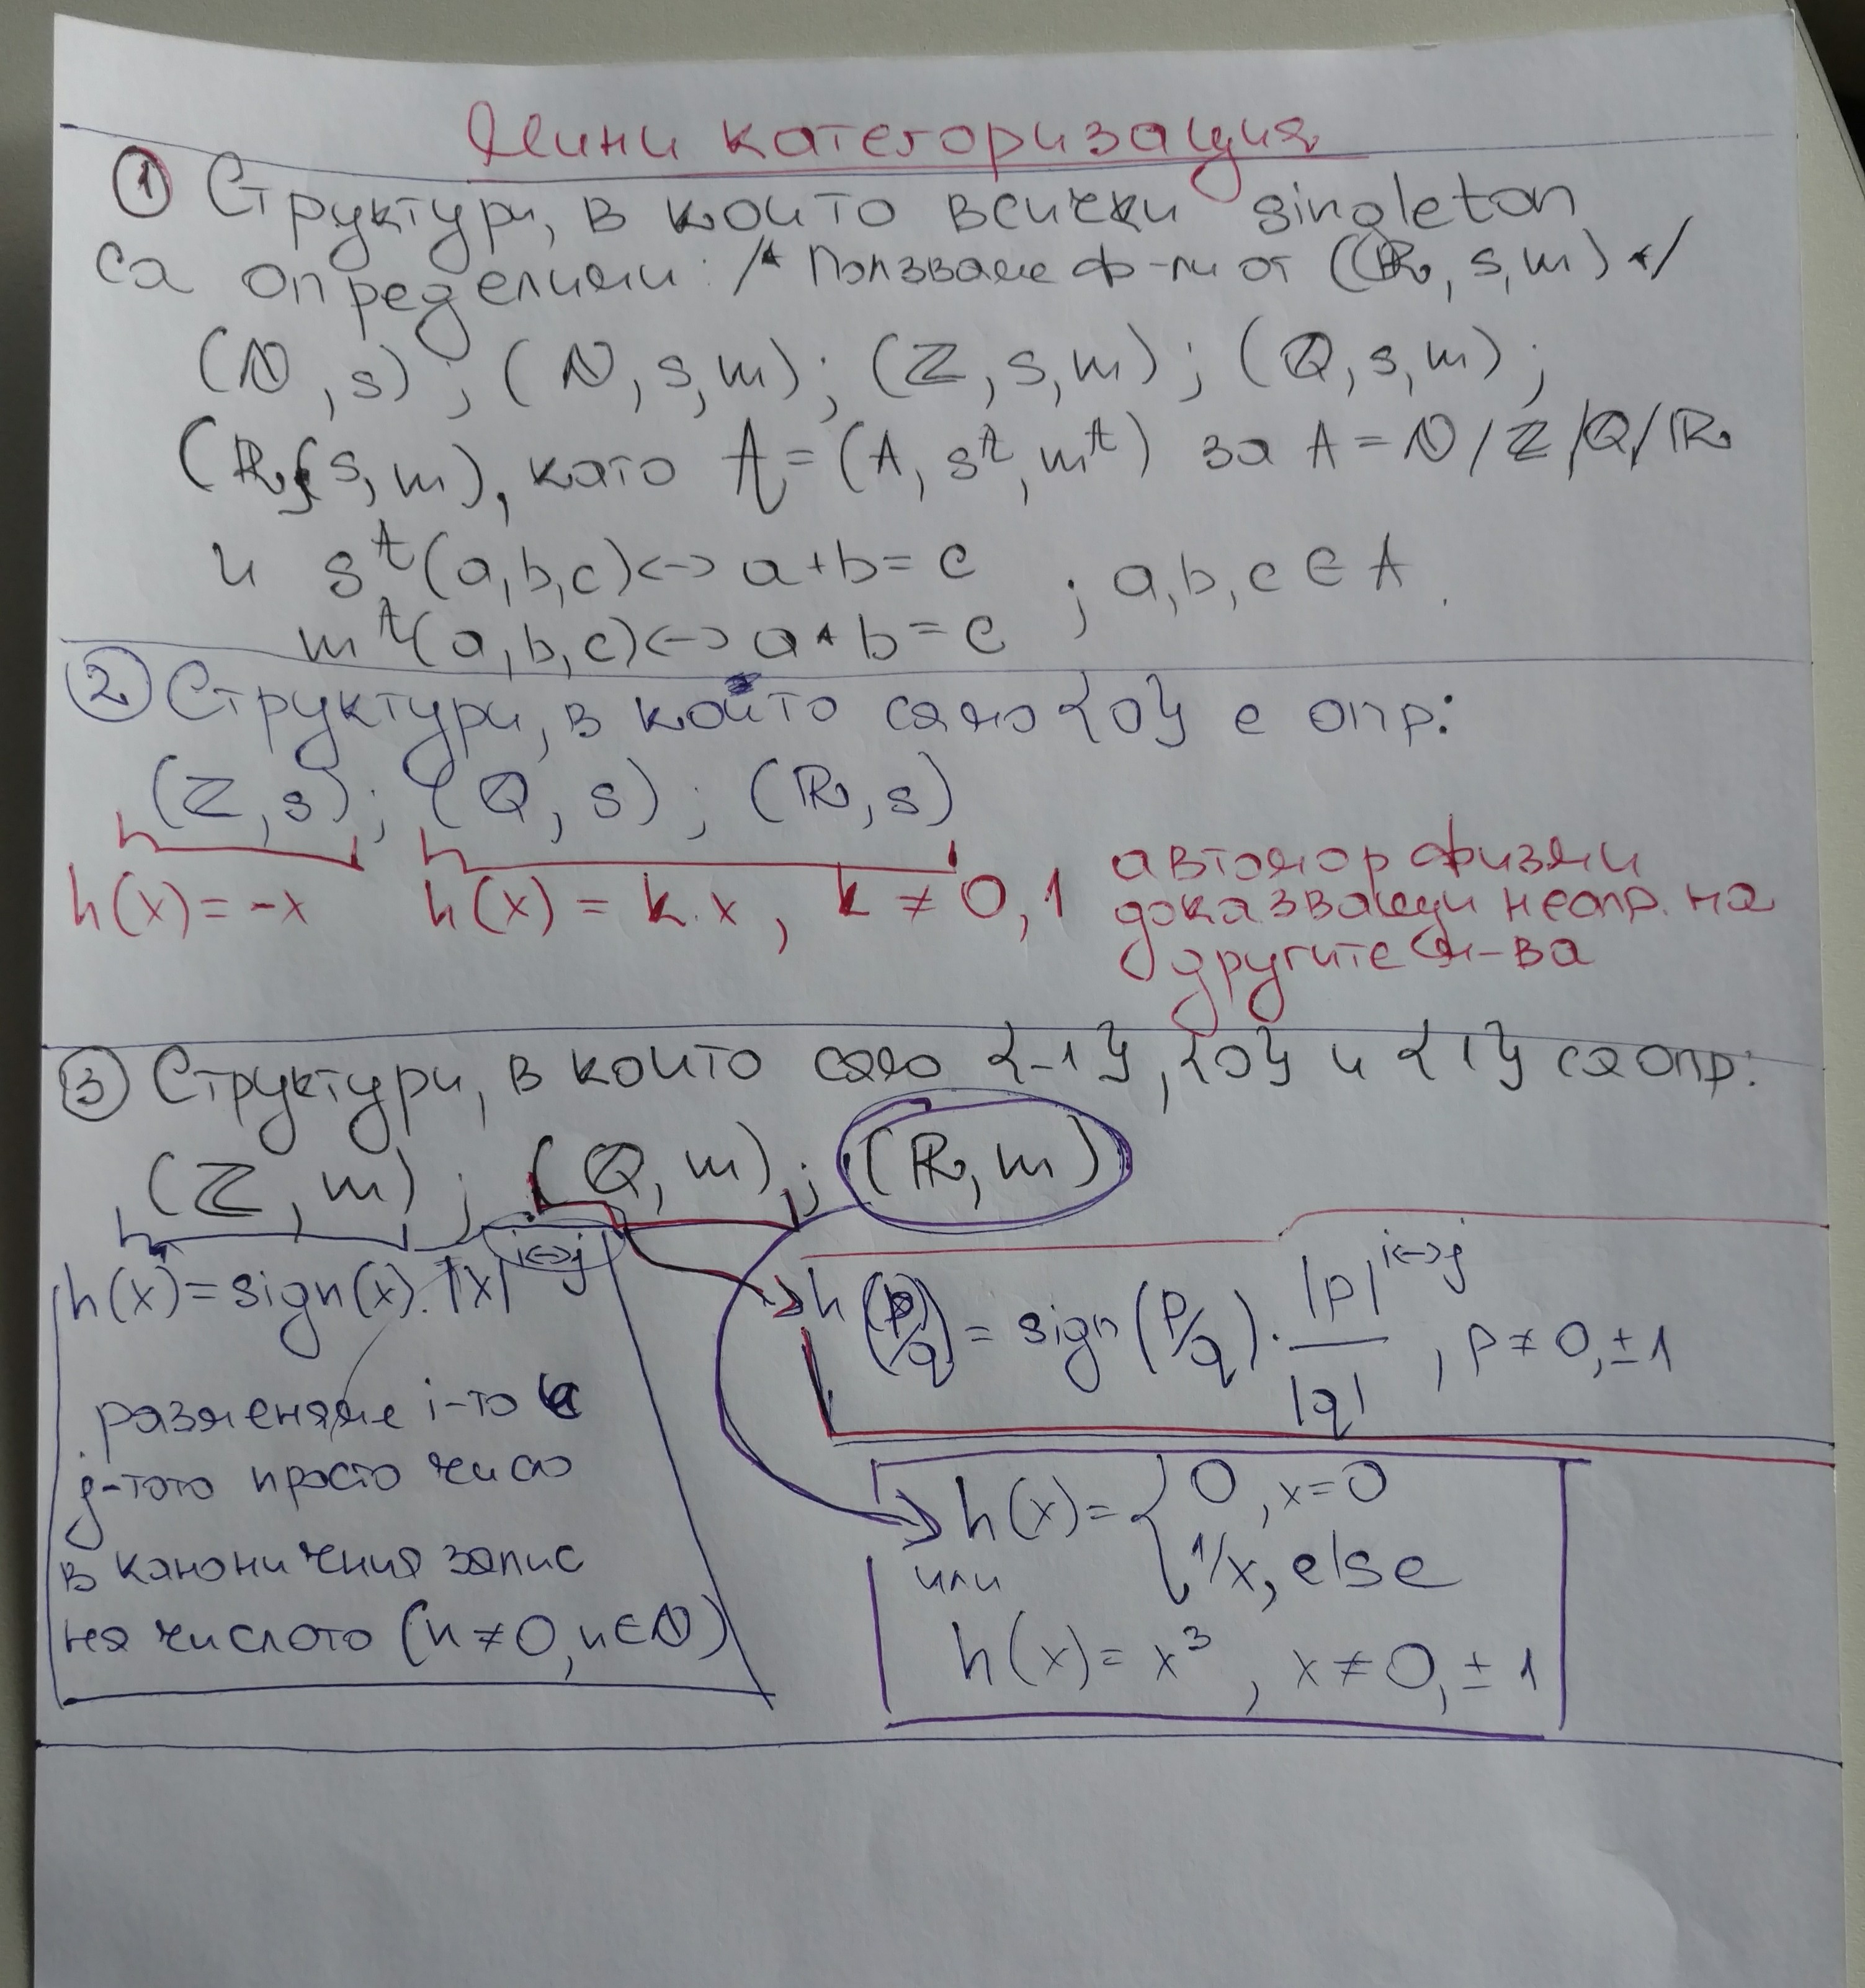 Мини категоризация
① Структури, в които всички singleton
са определими: /* Ползваме ф-ли от (ℝ, s, m) */
(ℕ, s); (ℕ, s, m); (ℤ, s, m); (ℚ, s, m);
(ℝ, s, m), като 𝒜 = (A, s^𝒜, m^𝒜) за A = ℕ/ℤ/ℚ/ℝ
и s^𝒜(a,b,c) <-> a+b=c ; a,b,c ∈ A.
m^𝒜(a,b,c) <-> a*b=c
② Структури, в които само {0} е опр:
(ℤ, s); (ℚ, s); (ℝ, s)
h(x) = -x h(x) = k.x, k ≠ 0,1 автоморфизми
доказващи неопр. на
другите м-ва
③ Структури, в които само {-1}, {0} и {1} са опр:
(ℤ, m); (ℚ, m); (ℝ, m)
h(x) = sign(x).|x|^{i<->j}
разменяме i-то с
j-тото просто число
в каноничния запис
на числото (n ≠ 0, n ∈ ℕ)
h(p/q) = sign(p/q) . |p|^{i<->j} / |q| , p ≠ 0, ±1
h(x) = { 0, x=0
1/x, else
или
h(x) = x³, x ≠ 0, ±1